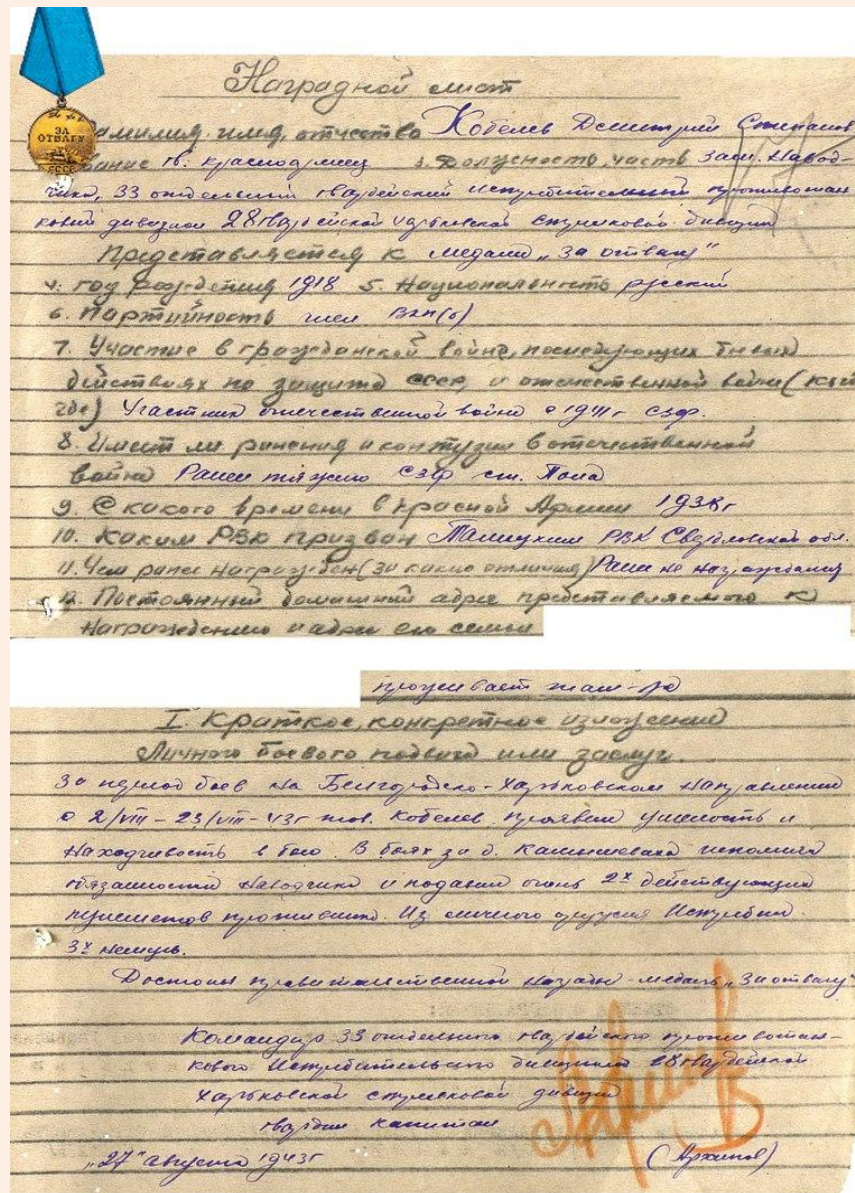 ЗА
ОТВАГУ
СССР
Наградной лист
Фамилия, имя, отчество Кобелев Дмитрий Степанов
звание гв. красноармеец 3. Должность, часть Зам. Навод-
чика, 33 отдельный гвардейский истребительный противотан
ковый дивизион 28 гвардейской харьковской стрелковой дивизии
Представляется к медали „За отвагу"
4. год рождения 1918 5. Национальность русский
6. Партийность член ВКП(б)
7. Участие в гражданской войне, последующих боевых
действиях по защите СССР, и отечественной войне (
где) Участник отечественной войны с 1941г СЗФ.
8. Имеет ли ранения и контузии в отечественной
войне Ранен тяжело СЗФ ст. Пола
9. С какого времени в Красной Армии 1938г
10. Каким РВК призван Талицким РВК Свердловской обл.
11. Чем ранее награжден (за какие отличия) Ранее не награждался
12. Постоянный домашний адрес представляемого к
награждению и адрес его семьи
проживает там-же
I. Краткое, конкретное изложение
Личного боевого подвига или заслуг.
За период боев на Белгородско-Харьковском направлении
с 2/VIII – 23/VIII – 43г тов. Кобелев проявил и
находчивость в бою. В боях за д. исполнял
обязанности наводчика и подавил огонь 2х действующих
пулеметов противника. Из личного оружия истребил
3х немцев.
Достоин правительственной награды – медаль „За отвагу"
Командир 33 отдельного гвардейского противотан-
кового истребительного дивизиона 28 гвардейской
харьковской стрелковой дивизии
гвардии капитан
„27" августа 1943г (Архипов)